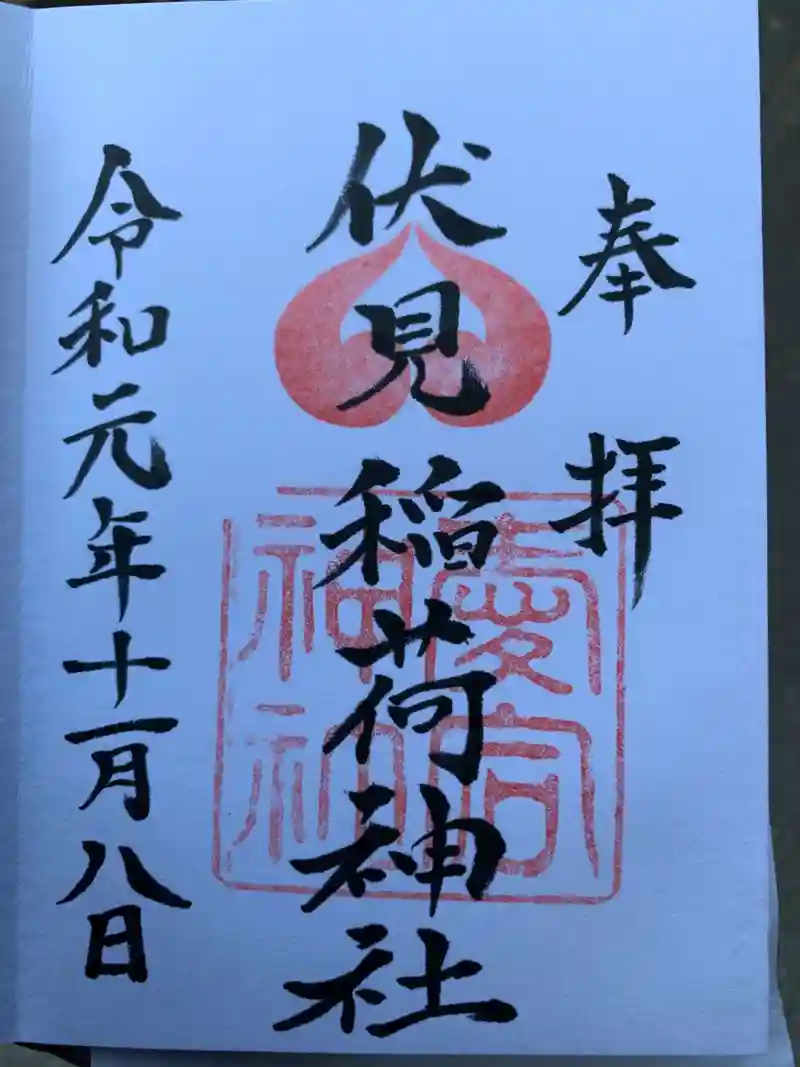 奉拝
伏見稲荷神社
令和元年十一月八日
愛宕
神社